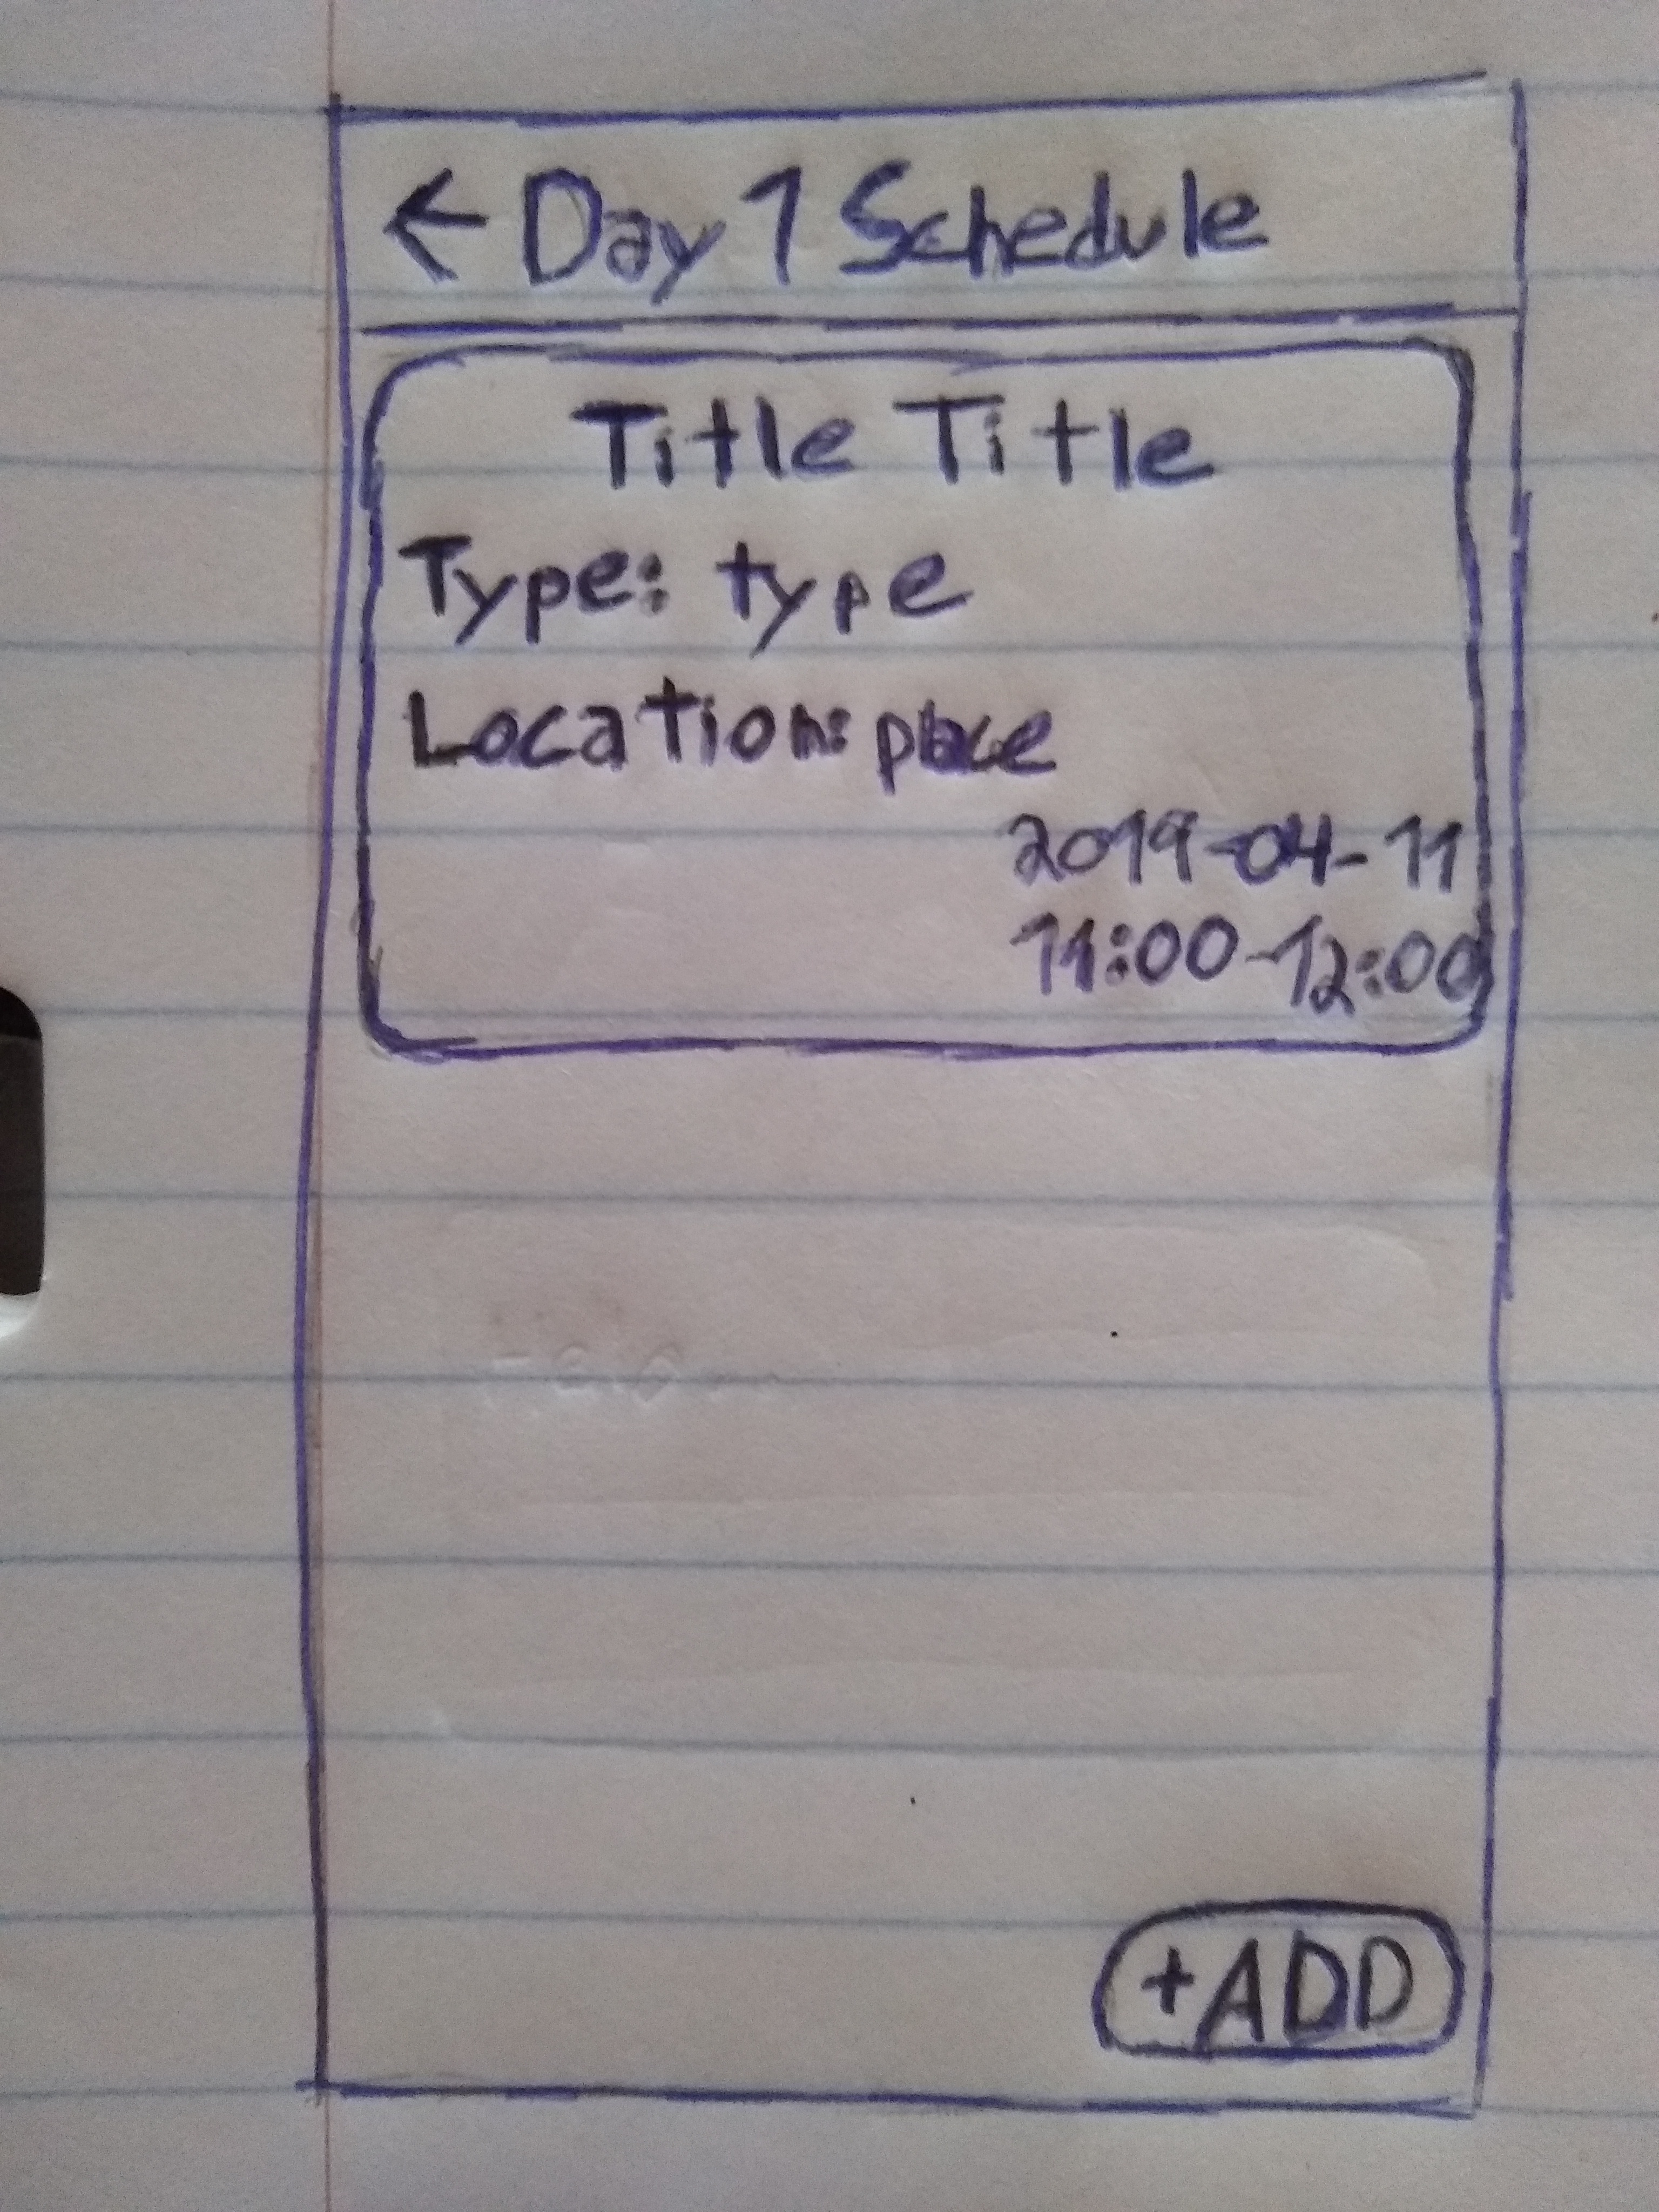 ← Day 1 Schedule
Title Title
Type: type
Location: place
2019-04-11
11:00-12:00
+ADD